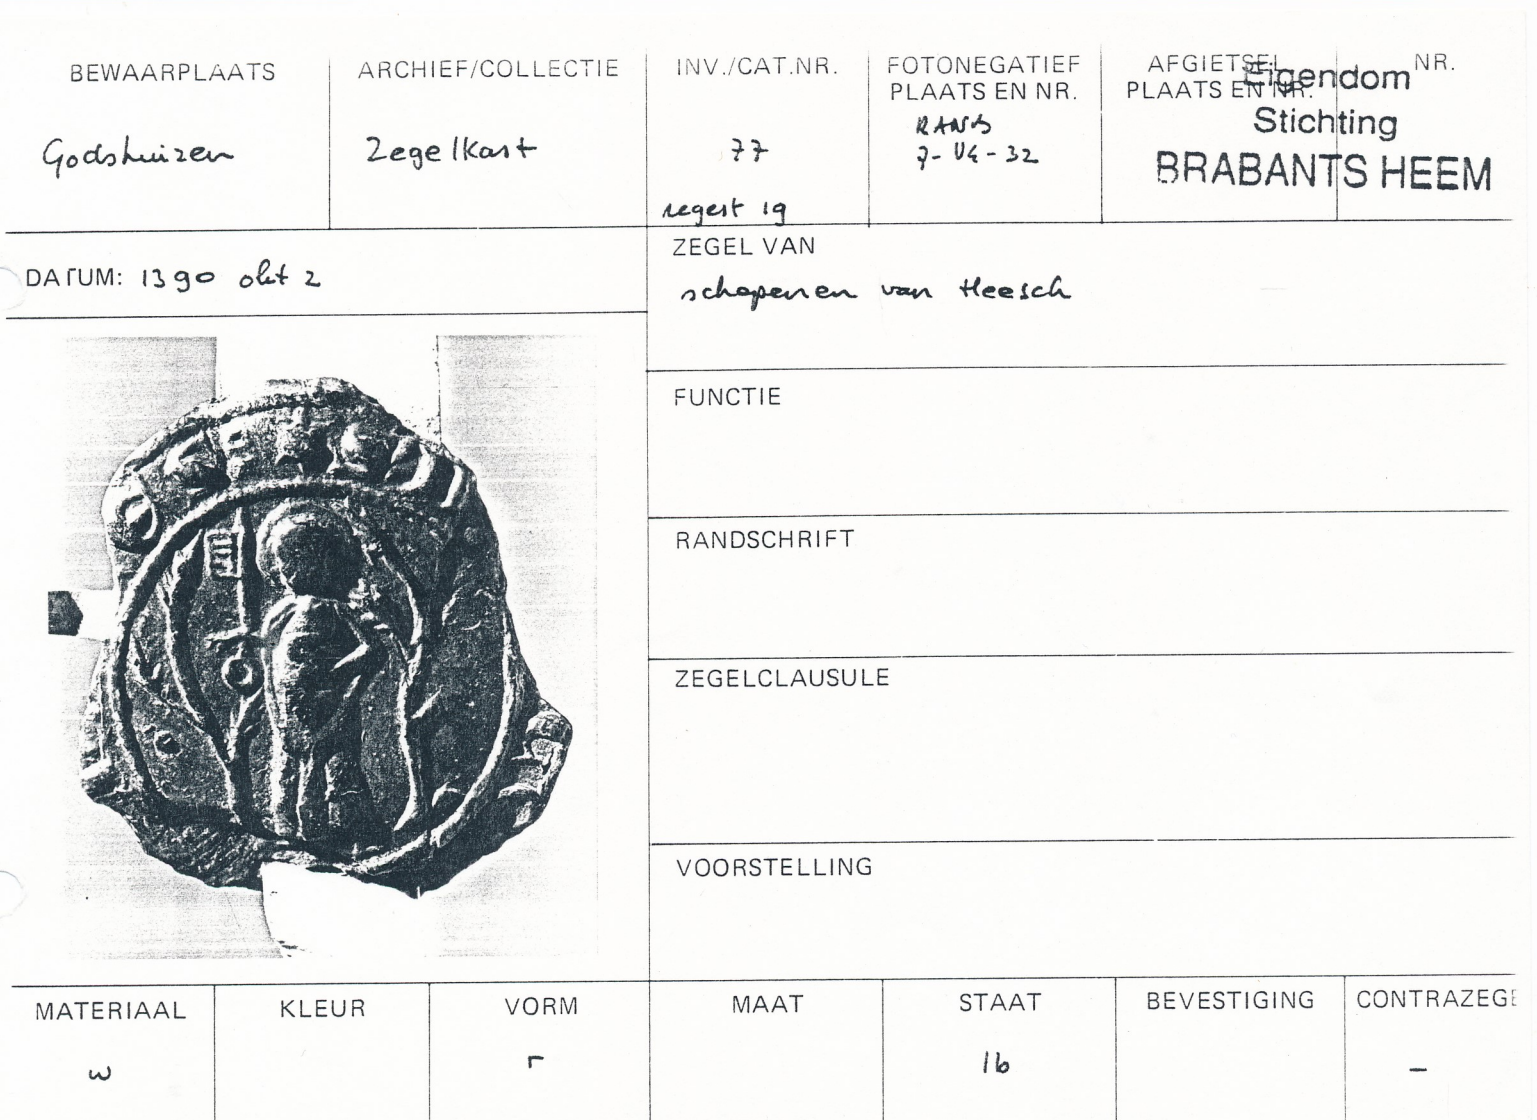 BEWAARPLAATS
Godshuizen
ARCHIEF/COLLECTIE
Zegelkast
INV./CAT.NR.
77
regest 19
FOTONEGATIEF
PLAATS EN NR.
RANB
7-U4-32
AFGIETSEL
PLAATS EN NR.
NR.
Eigendom
Stichting
BRABANTS HEEM
DATUM: 1390 okt 2
ZEGEL VAN
schepenen van Heesch
FUNCTIE
RANDSCHRIFT
ZEGELCLAUSULE
VOORSTELLING
MATERIAAL
w
KLEUR
VORM
r
MAAT
STAAT
1b
BEVESTIGING
CONTRAZEGE
–